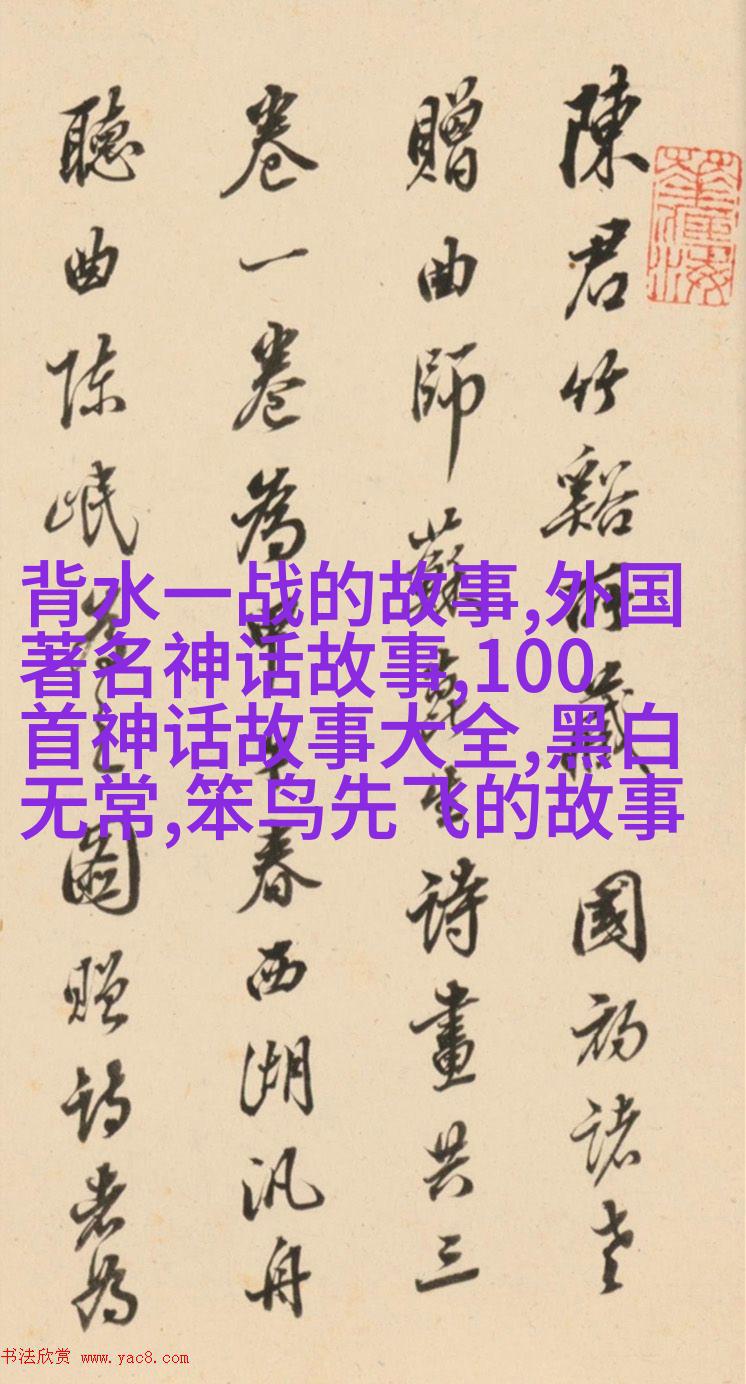 陳君竹谿所藏國初諸老
贈曲師蘇崑生詩畫共三
卷一卷為甲午春西湖汎舟
聽曲陈岷之圖贈詩者為
背水一战的故事,外国
著名神话故事,100
首神话故事大全,黑白
无常,笨鸟先飞的故事
书法欣赏 www.yac8.com